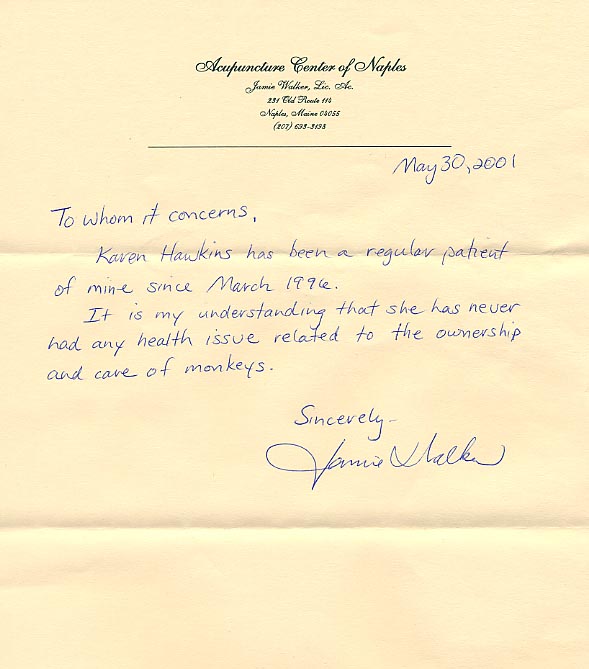 Acupuncture Center of Naples
Jamie Walker, Lic. Ac.
231 Old Route 114
Naples, Maine 04055
(207) 693-3193
May 30, 2001
To whom it concerns,
Karen Hawkins has been a regular patient
of mine since March 1996.
It is my understanding that she has never
had any health issue related to the ownership
and care of monkeys.
Sincerely-
Jamie Walker